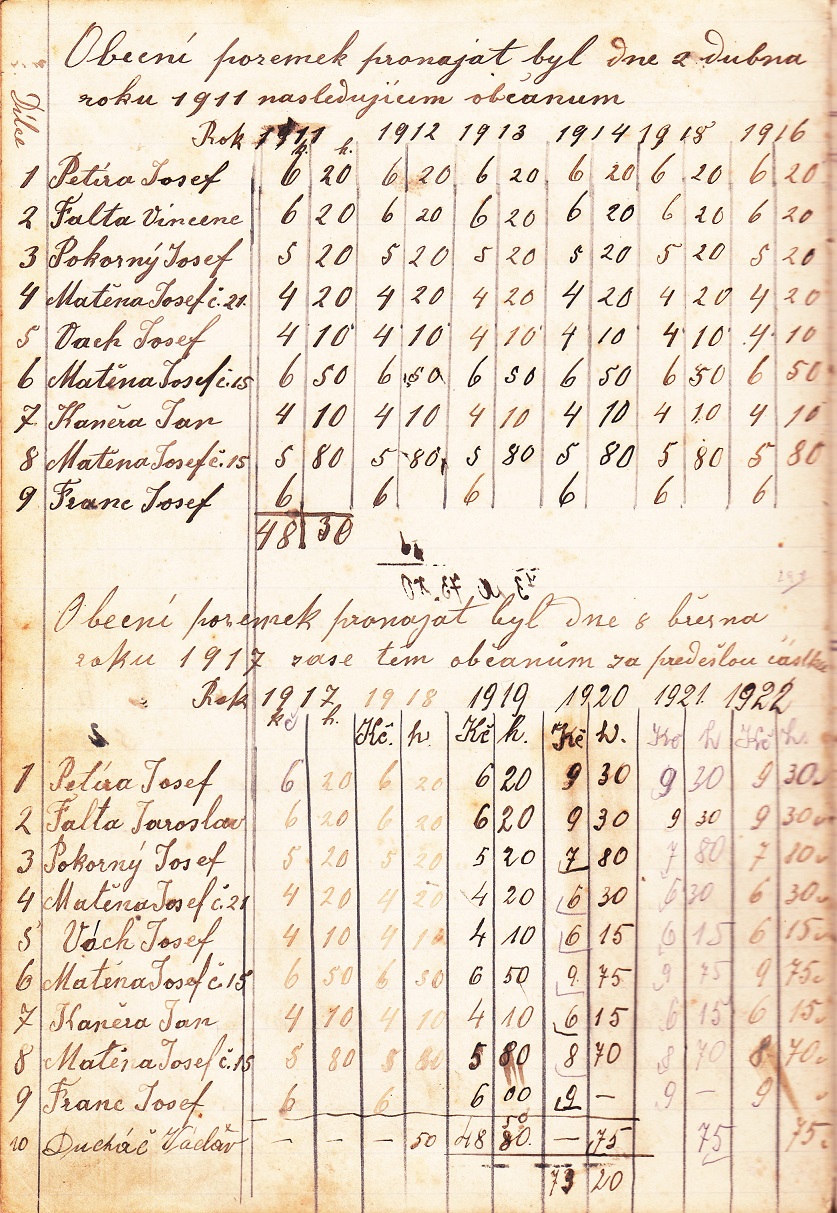 Obecní pozemek pronajat byl dne 2 dubna
roku 1911 nasledujicum občanum
Dílce
Rok 1911 1912 1913 1914 1915 1916
k. h.
1 Petira Josef 6 20 6 20 6 20 6 20 6 20 6 20
2 Falta Vincenc 6 20 6 20 6 20 6 20 6 20 6 20
3 Pokorný Josef 5 20 5 20 5 20 5 20 5 20 5 20
4 Matěna Josef č. 21 4 20 4 20 4 20 4 20 4 20 4 20
5 Vach Josef 4 10 4 10 4 10 4 10 4 10 4 10
6 Matěna Josef č. 15 6 50 6 50 6 50 6 50 6 50 6 50
7 Kaněra Jan 4 10 4 10 4 10 4 10 4 10 4 10
8 Matěna Josef č. 15 5 80 5 80 5 80 5 80 5 80 5 80
9 Franc Josef 6 6 6 6 6 6
48 30
Obecní pozemek pronajat byl dne 8 března
roku 1917 zase těm občanům za předešlou částku
Rok 1917 1918 1919 1920 1921 1922
kč h. Kč. h. Kč h. Kč h. Kč h Kč h.
1 Petira Josef 6 20 6 20 6 20 9 30 9 30 9 30
2 Falta Jaroslav 6 20 6 20 6 20 9 30 9 30 9 30
3 Pokorný Josef 5 20 5 20 5 20 7 80 7 80 7 80
4 Matěna Josef č. 21 4 20 4 20 4 20 6 30 6 30 6 30
5 Vách Josef 4 10 4 10 4 10 6 15 6 15 6 15
6 Matěna Josef č. 15 6 50 6 50 6 50 9 75 9 75 9 75
7 Kaněra Jan 4 10 4 10 4 10 6 15 6 15 6 15
8 Matěna Josef č. 15 5 80 5 80 5 80 8 70 8 70 8 70
9 Franc Josef 6 6 6 00 9 – 9 – 9
10 Ducháč Václav – – – 50 50 – 75 75 75
48 80
73 20